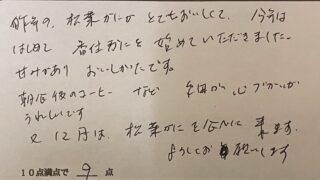 昨年の、松葉がにが とてもおいしくて、今年は
はじめて 香住がにを 始めていただきました。
甘みがあり おいしかったです。
朝食後のコーヒー など 細かい心づかいが
うれしいです
又 12月は、松葉がにを食べに 来ます。
よろしくお願いします
10点満点で 9 点